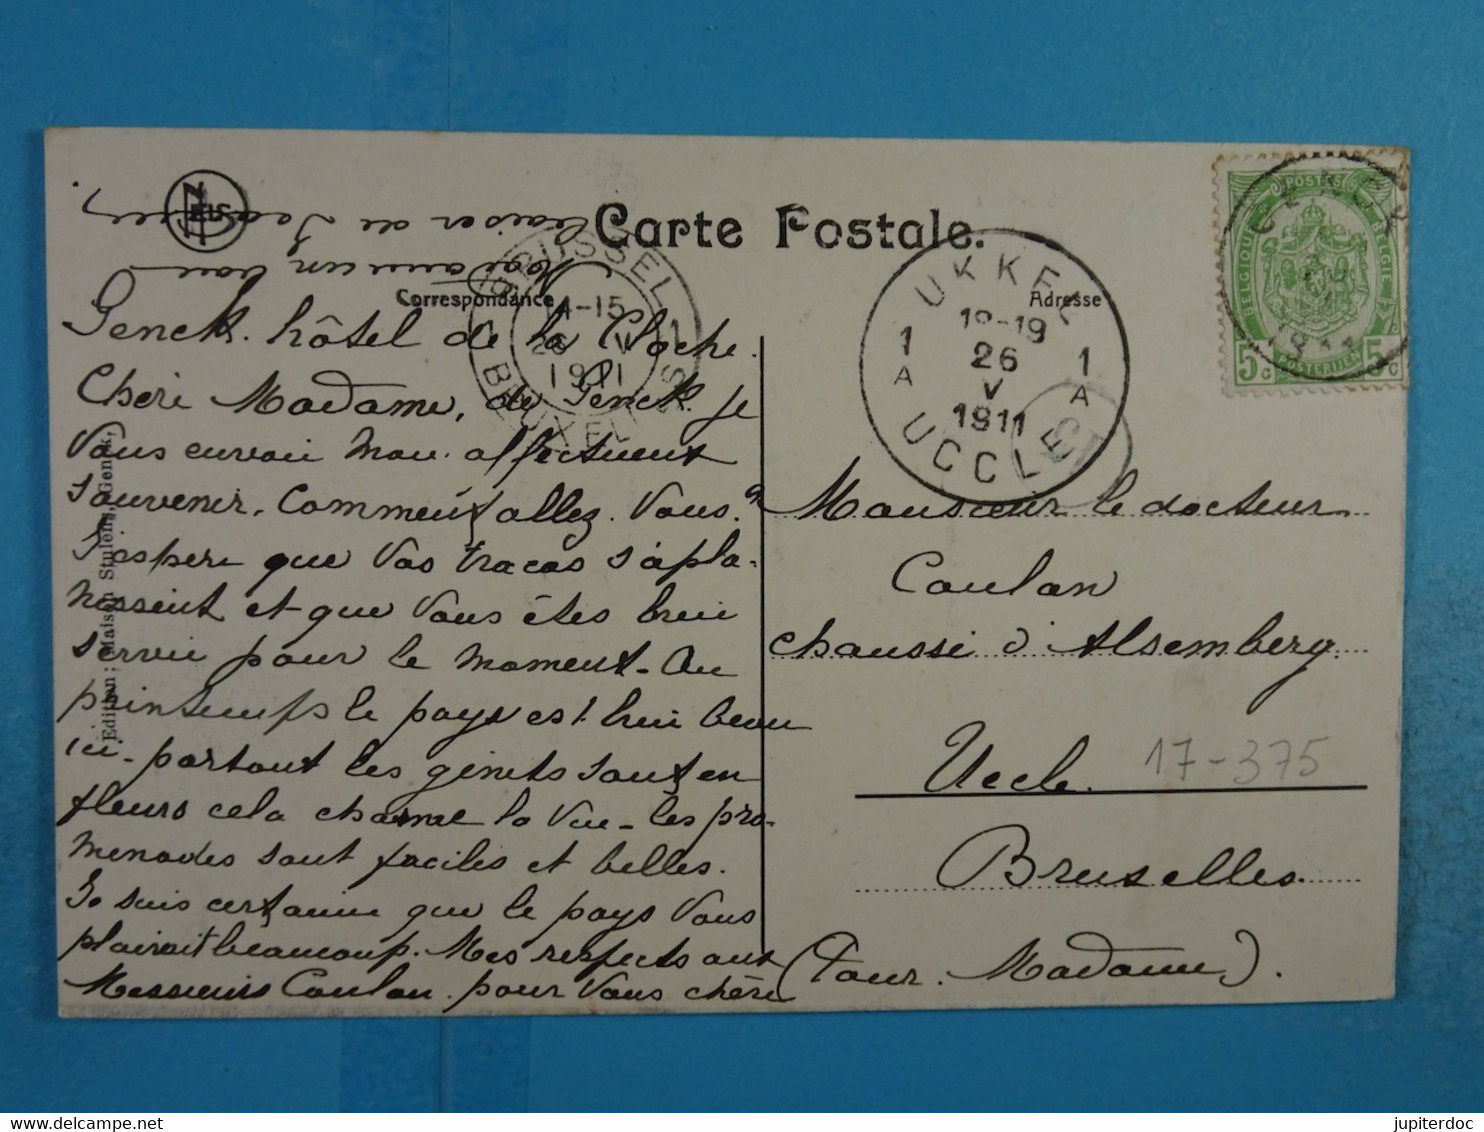 Carte Postale.
Correspondance
Adresse
NELS
Edition: Maison Stulens, Genck.
BRUSSEL
1 1
-15
26 V
1911
BRUXELLES
UKKEL
1 1
A A
18-19
26
V
1911
UCCLE
POSTES
BELGIQUE
BELGIË
POSTERIJEN
5c 5c
Genck. hôtel de la Cloche.
Chère Madame, de Genck. je
Vous envoie mon affectueux
souvenir. Comment allez. Vous.
J'espère que Vos tracas s'apla-
nissent et que Vous êtes bien
servie pour le moment. Au
printemps le pays est bien beau
ici. partout les genêts sont en
fleurs cela charme la vue. les pro-
menades sont faciles et belles.
Je suis certaine que le pays Vous
plairait beaucoup. Mes respects aux
Messieurs Coulon. pour Vous chère
Madame un bon
baiser de
Monsieur le docteur
Coulon
chaussée d'Alsemberg.
Uccle.
17-375
Bruxelles.
(Pour. Madame).
jupiterdoc